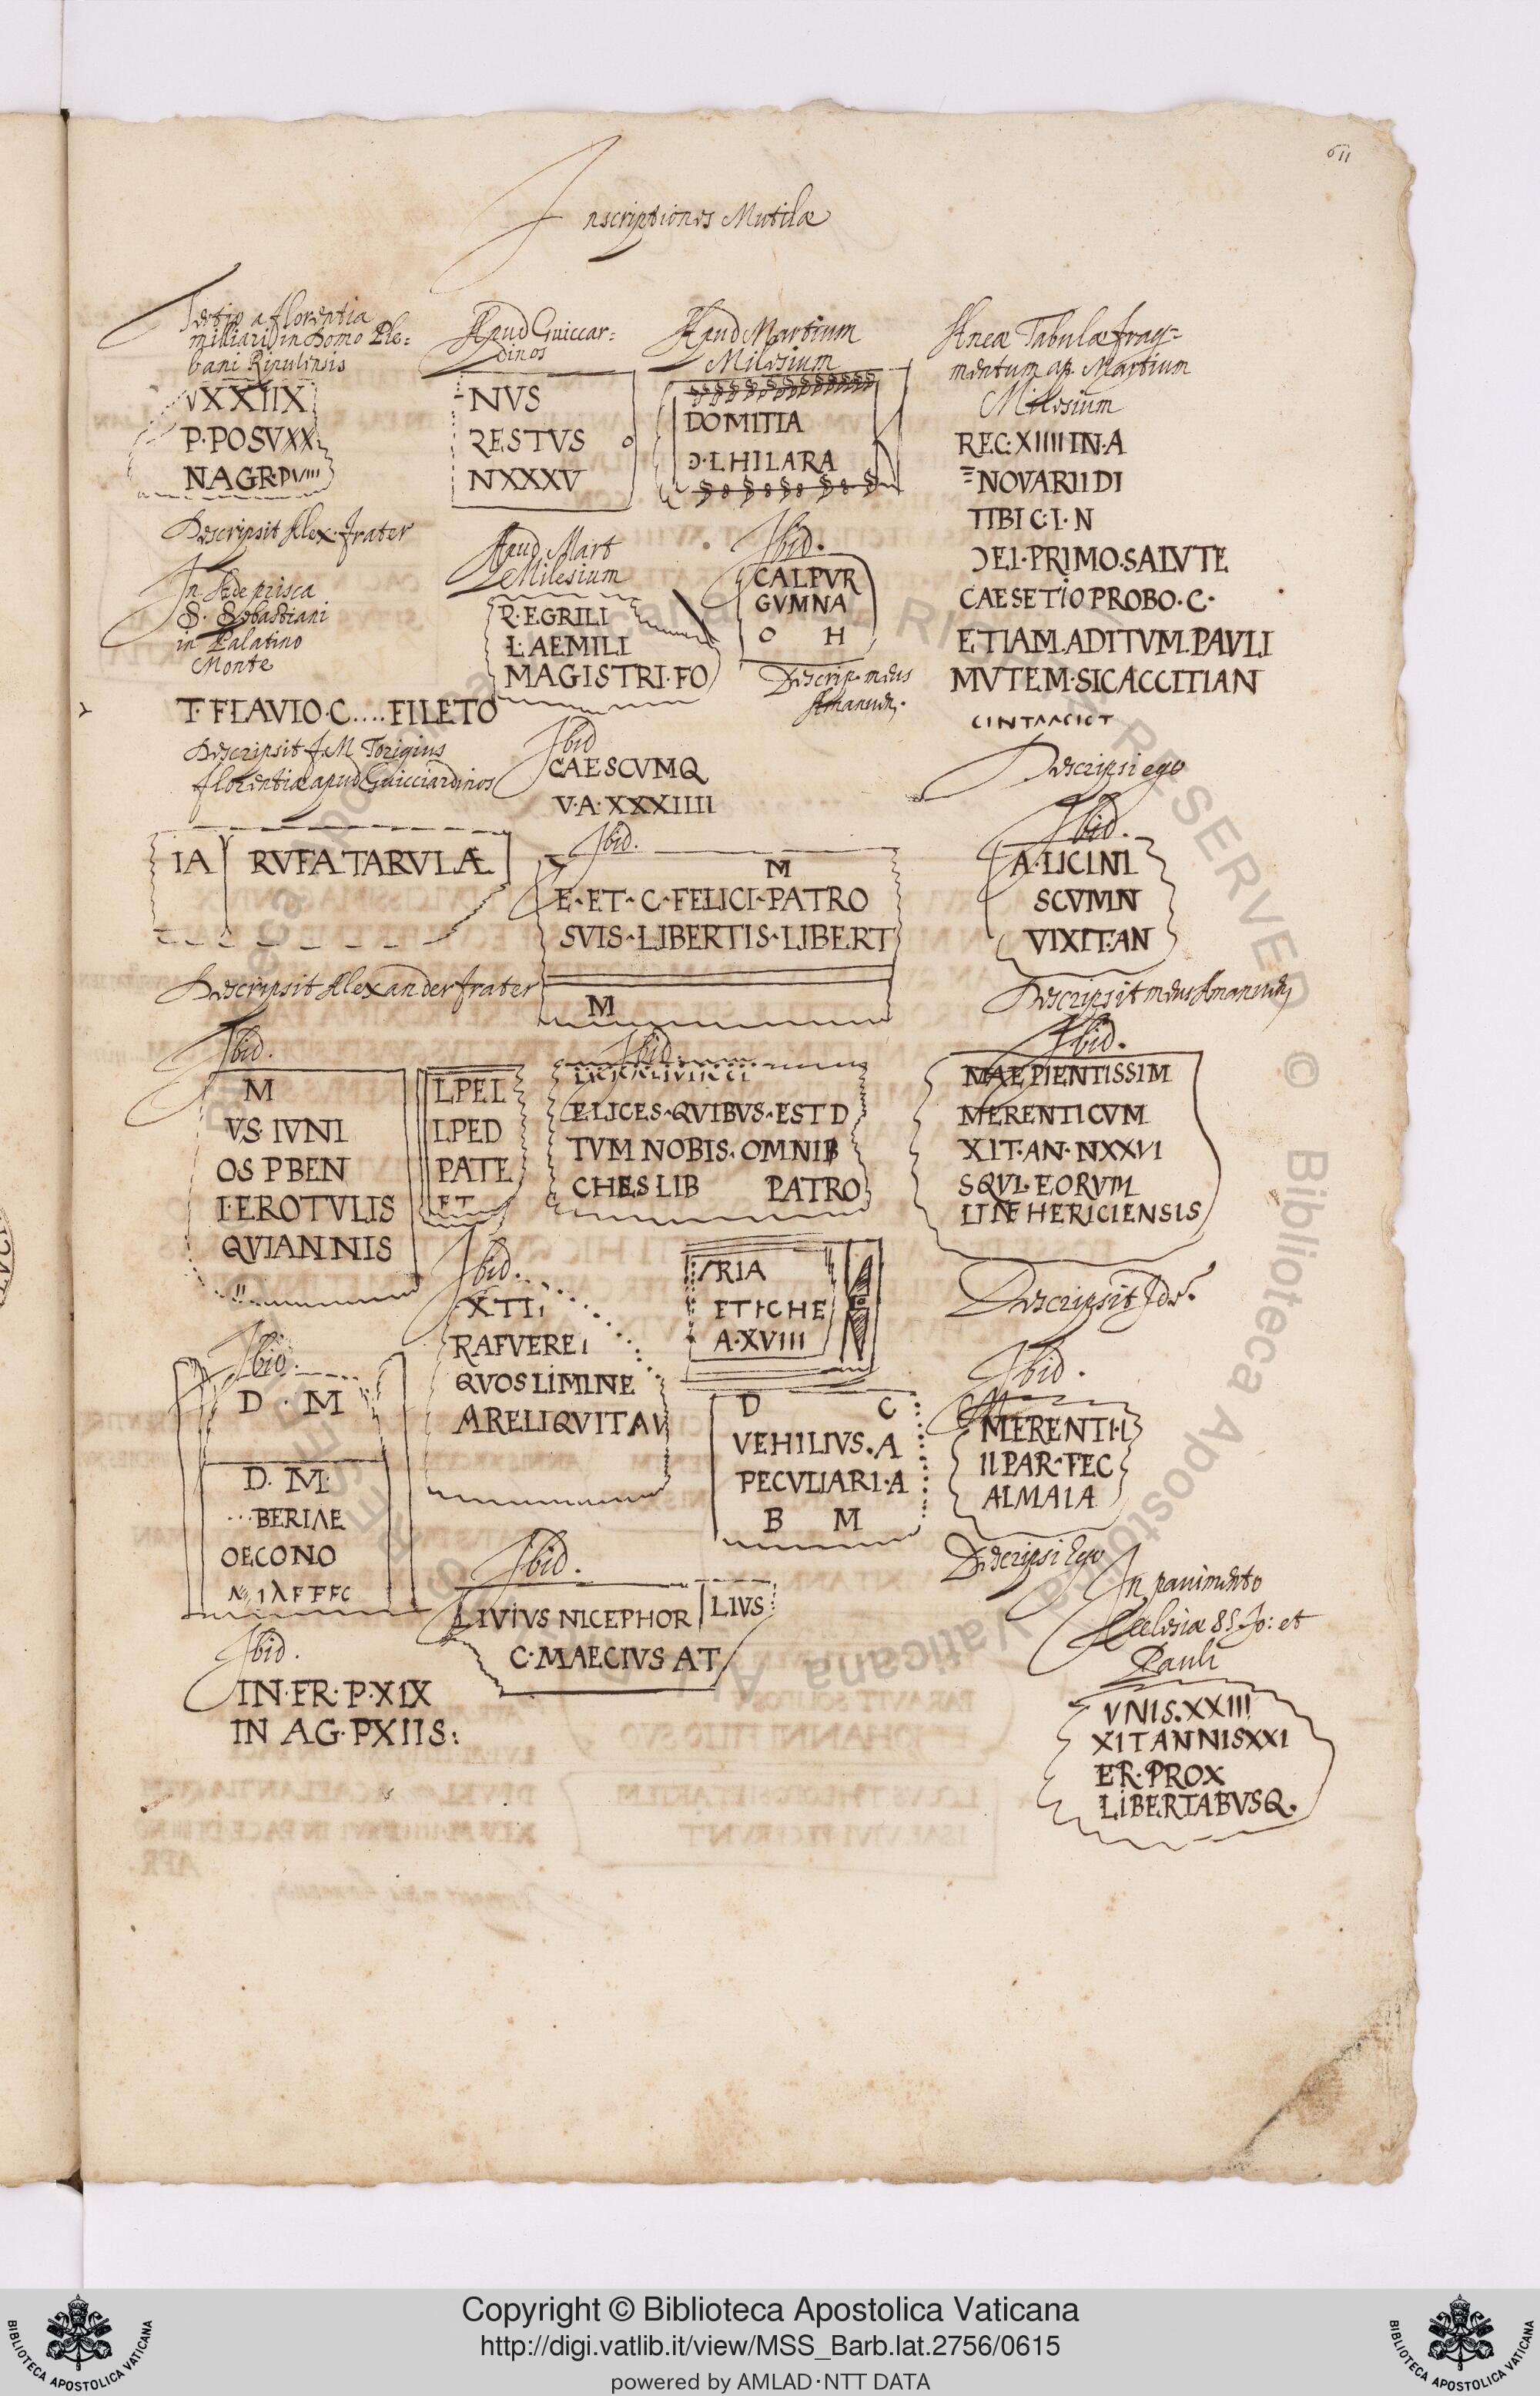 611
Inscriptiones Mutilæ
Tertio a florentia
milliario in Domo Ple=
bani Ripulensis
VXXIIX
P·POSVXX
NAGR·PVIIII
Descripsit Alex·frater
In Æde prisca
S. Sebastiani
in Palatino
Monte
T·FLAVIO·C....FILETO
Descripsit J.M Torigius
florentiæ apud Guicciardinos
IA RVFA TARVLÆ
Descripsit Alexander frater
Ibid.
M
VS·IVNI
OS P BEN
I·EROTVLIS
QVIANNIS
LPEL
LPED
PATE
ET
Ibid.
D · M
D. M·
...BERIAE
OECONO
Ibid.
IN·FR·P·XIX
IN AG·PXIIS:
Apud Guiccar=
dinos
NVS
RESTVS O
NXXXV
Apud Martium
Milesium
DOMITIA
Ɔ·LHILARA
Apud Mart
Milesium
P·EGRILI
L·AEMILI
MAGISTRI·FO
Ibid.
CALPVR
GVMNA
O H
Descrip·meus
Amanuen.
Ibid
CAESCVMQ
V·A·XXXIIII
Ibid.
M
E·ET·C·FELICI·PATRO
SVIS·LIBERTIS·LIBERT
M
Ibid.
ELICES·QVIBVS·EST D
TVM NOBIS·OMNIB
CHES LIB PATRO
Ibid.
XTI
RAFVEREI
QVOSLIMINE
ARELIQVITAV
RIA
ETICHE
A·XVIII
D C
VEHILIVS·A
PECVLIARI·A
B M
Ibid.
LIVIVS NICEPHOR LIVS
C·MAECIVS AT
Æneæ Tabulæ frag=
mentum ap. Martium
Milesium
REC·XIIII IN·A
NOVARII DI
TIBI C·I·N
ƆEI·PRIMO·SALVTE
CAESETIO PROBO·C·
ETIAM·ADITVM·PAVLI
MVTEM·SICACCITIAN
Descripsi ego
Ibid.
A·LICINI
SCVMN
VIXIT·AN
Descripsit meus Amanuen
Ibid.
MAEPIENTISSIM
MERENTICVM
XIT·AN·NXXVI
SQVL·EORVM
HERICIENSIS
Descripsit Ide
Ibid.
MERENTI·I
II PAR·FEC
ALMAIA
Descripsi Ego
In pauimento
Ecclesiæ SS. Jo: et
Pauli
VNIS·XXIII
XITANNISXXI
ER·PROX
LIBERTABVSQ.
Copyright © Biblioteca Apostolica Vaticana
http://digi.vatlib.it/view/MSS_Barb.lat.2756/0615
powered by AMLAD·NTT DATA
BIBLIOTECA APOSTOLICA VATICANA
BIBLIOTECA APOSTOLICA VATICANA